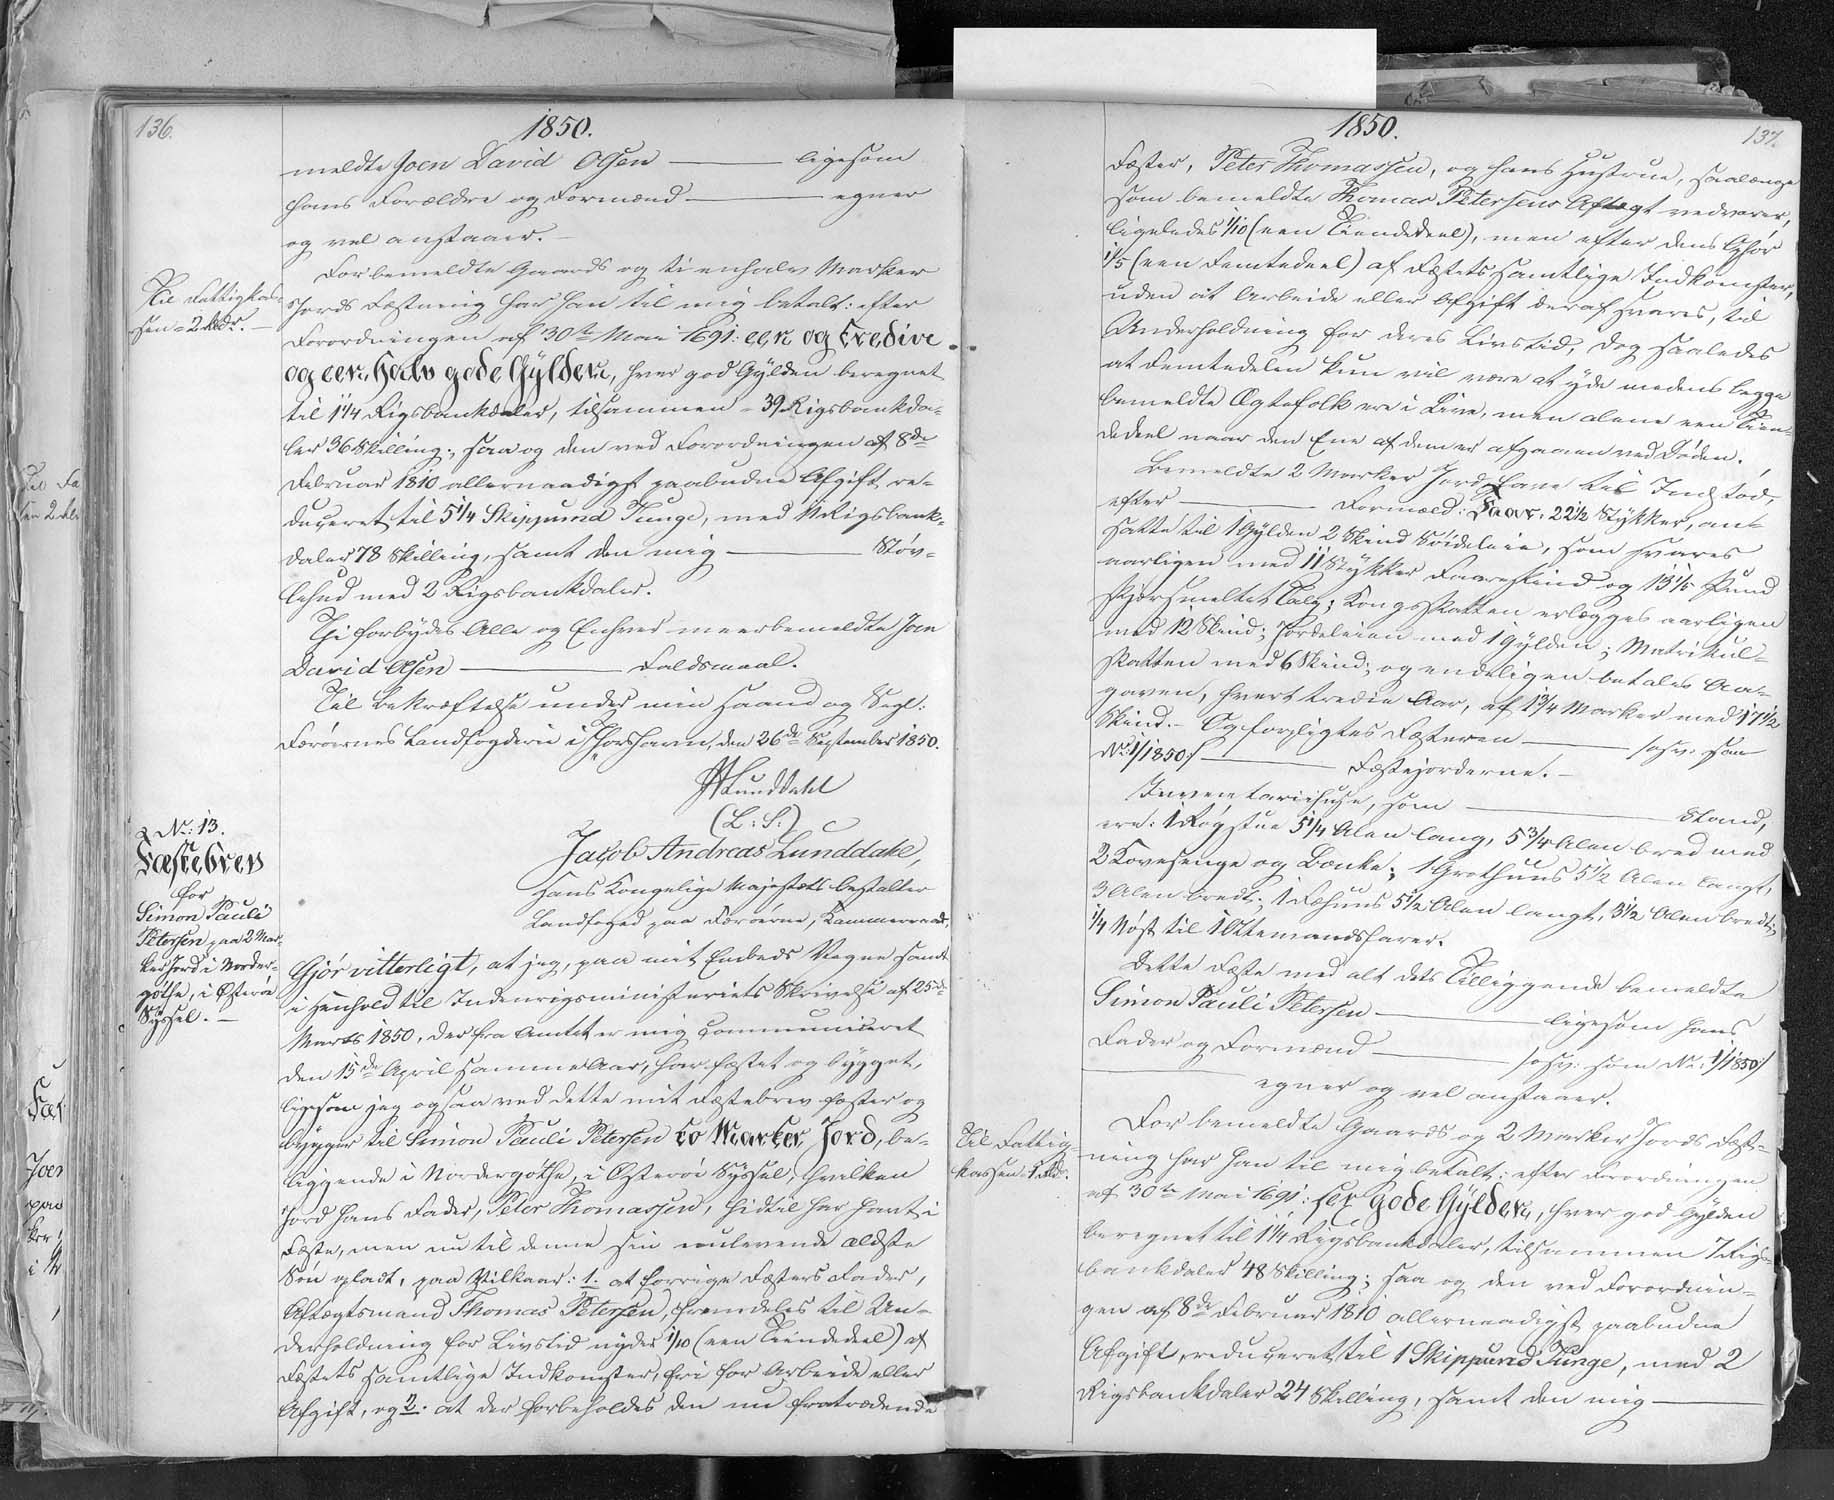 136.
1850.
meldte Joen David Olsen ——— ligesom
hans Forældre og Formænd ——— egner
og vel anstaaer. —
For bemeldte Gaards og ti enhalv Marker
Jords Fæstning har han til mig betalt: efter
Forordningen af 30te Mai 1691: een og tredive
og een halv gode Gylden, hver god Gylden beregnet
til 1 1/4 Rigsbankdaler, tilsammen = 39 Rigsbankda-
ler 36 Skilling; saa og den ved Forordningen af 8de
Februar 1810 allernaadigst paabudne Afgift, re-
duceret til 5 1/4 Skippund Tunge, med 11 Rigsbank-
daler 78 Skilling, samt den mig ——— Støv-
lehud med 2 Rigsbankdaler.
Thi forbydes Alle og Enhver meerbemeldte Joen
David Olsen ——— Faldsmaal.
Til Bekræftelse under min Haand og Segl.
Færøernes Landfogderie i Thorshavn, den 26de September 1850.
Lunddahl
(L: S:)
Til Fattigkas-
sen = 2 Rbdr. —
No: 13.
Fæstebrev
for
Simon Pauli
Petersen paa 2 Mar-
ker Jord i Norder-
gøthe, i Østerøe
Syssel. —
Jacob Andreas Lunddahl,
Hans Kongelige Majestæts bestalter
Landfoged paa Færøerne, Kammerraad,
Gjør vitterligt, at jeg, paa mit Embeds Vegne samt
i Henhold til Indenrigsministeriets Skrivelse af 25de
Marts 1850, der fra Amtet er mig communiceret
den 15de April samme Aar, har fæstet og bygget,
ligesom jeg ogsaa ved dette mit Fæstebrev fæster og
bygger til Simon Pauli Petersen to Marker Jord, be-
liggende i Nordergøthe, i Østerøe Syssel, hvilken
Jord hans Fader, Peter Thomassen, hidtil har havt i
Fæste, men nu til denne sin nulevende ældste
Søn opladt, paa Vilkaar: 1. at forrige Fæsters Fader,
Aftægtsmand Thomas Petersen, fremdeles til Un-
derholdning for Livstid nyder 1/10 (een Tiendedeel) af
Fæstets samtlige Indkomster, fri for Arbeide eller
Afgift, og 2. at der forbeholdes den nu fratrædende
1850.
137.
Fæster, Peter Thomassen, og hans Hustrue, saalænge
som bemeldte Thomas Petersens Aftægt vedvarer,
ligeledes 1/10 (een Tiendedeel), men efter dens Ophør
1/5 (een Femtedeel) af Fæstets samtlige Indkomster,
uden at Arbeide eller Afgift deraf svares, til
Underholdning for deres Livstid, dog saaledes
at Femtedelen kun vil være at yde medens begge
bemeldte Ægtefolk ere i Live, men alene een Tien-
dedeel naar den Ene af dem er afgaaen ved Døden.
Bemeldte 2 Marker Jord have til Indstød,
efter ——— Formæld: Faar: 22 1/2 Stykker, an-
satte til 1 Gylden 2 Skind Søideleie, som svares
aarligen med 11 Stykker Faareskind og 13 1/5 Pund
skjørsmeltet Talg; Kongsskatten erlægges aarligen
med 12 Skind; Jordeleien med 1 Gylden; Matrikul-
skatten med 6 Skind; og endeligen betales Aa-
gaven, hvert tredie Aar, af 1 3/4 Marker med 17 1/2
Skind. — Og forpligtes Fæsteren ——— /: osv: som
No: 1/1850:/ ——— Fæstejorderne. —
Inventariihuse, som ——— Stand,
ere: 1 Røgstue 5 1/4 Alen lang, 5 3/4 Alen bred med
2 Kovesenge og Bænke; 1 Grothuus 5 1/2 Alen langt,
3 Alen bredt; 1 Fæhuus 5 1/2 Alen langt, 3 1/2 Alen bredt;
1/4 Nøst til 1 Ottemandsfarer.
Dette Fæste med alt dets Tilliggende bemeldte
Simon Pauli Petersen ——— ligesom hans
Fader og Formænd ——— /: osv: som No: 1/1850:/
——— egner og vel anstaaer.
For bemeldte Gaards og 2 Marker Jords Fæst-
ning har han til mig betalt: efter Forordningen
af 30te Mai 1691: sex gode Gylden, hver god Gylden
beregnet til 1 1/4 Rigsbankdaler, tilsammen 7 Rigs-
bankdaler 48 Skilling; saa og den ved Forordnin-
gen af 8de Februar 1810 allernaadigst paabudne
Afgift, reduceret til 1 Skippund Tunge, med 2
Rigsbankdaler 24 Skilling, samt den mig ———
Til Fattig-
kassen: 1 Rbd.